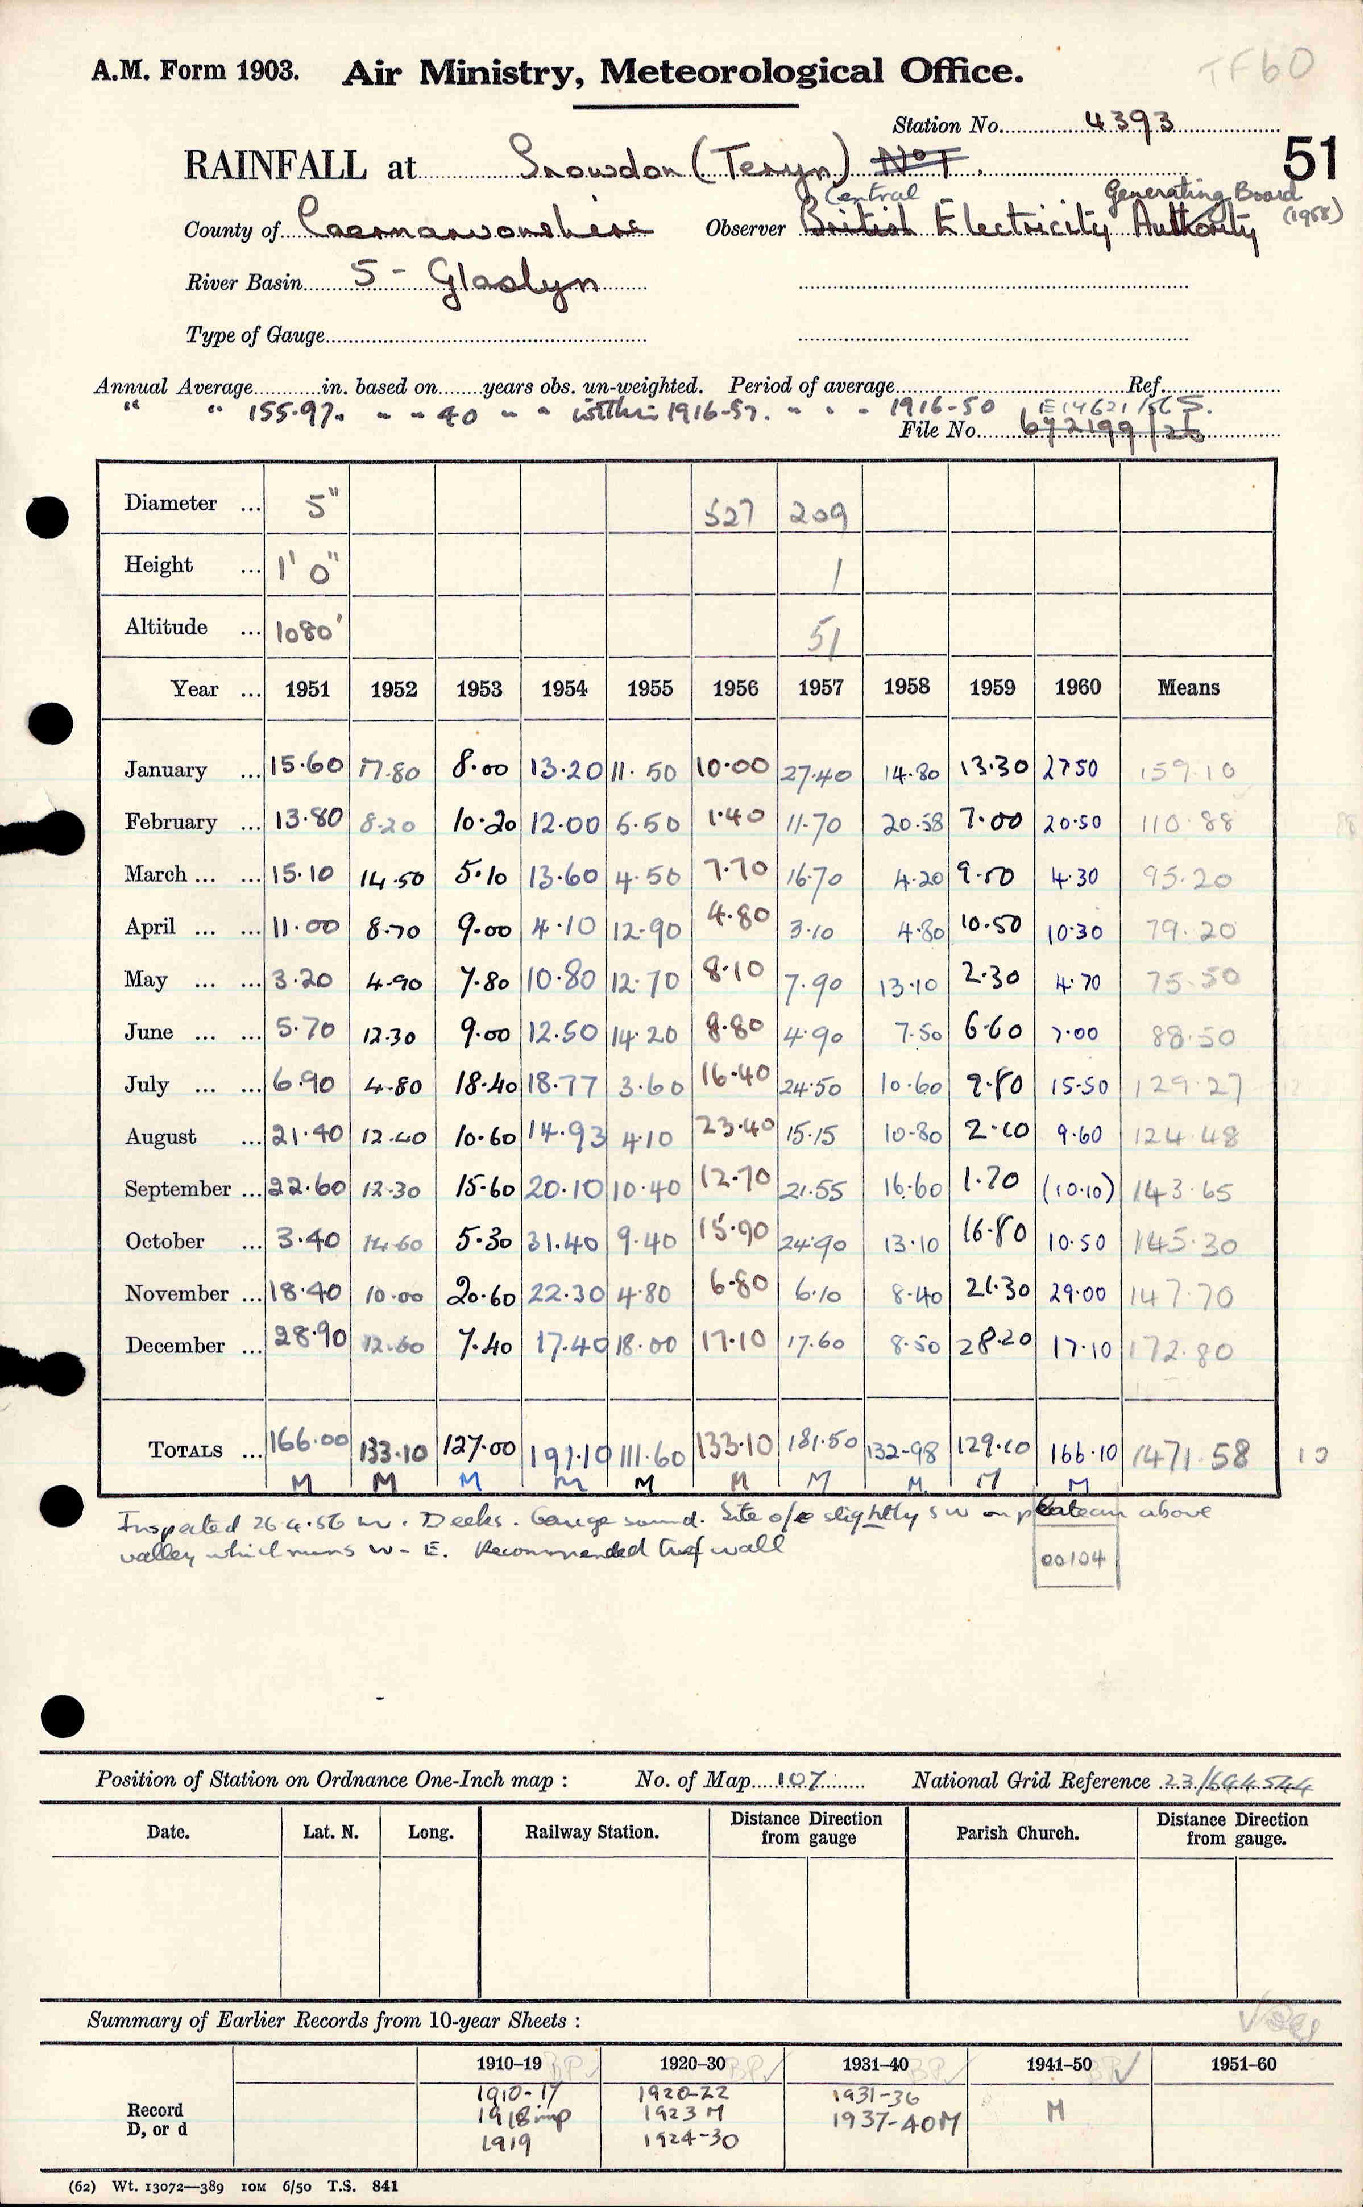 TF60
A.M. Form 1903. Air Ministry, Meteorological Office.
Station No. 4393
51
RAINFALL at Snowdon (Teryn) No 1.
Central Generating Board (1958)
County of Caernarvonshire Observer British Electricity Authority
River Basin 5 - Glaslyn
Type of Gauge
Annual Average in. based on years obs. un-weighted. Period of average Ref.
" " 155.97. " " 40 " " within 1916-57. " " " 1916-50 E14621/56 S.
File No. 672199/26
Diameter ... 5" 527 209
Height ... 1' 0" 1
Altitude ... 1080' 51
Year ... 1951 1952 1953 1954 1955 1956 1957 1958 1959 1960 Means
January ... 15.60 17.80 8.00 13.20 11.50 10.00 27.40 14.80 13.30 27.50 159.10
February ... 13.80 8.20 10.20 12.00 5.50 1.40 11.70 20.58 7.00 20.50 110.88
March ... ... 15.10 14.50 5.10 13.60 4.50 7.70 16.70 4.20 9.50 4.30 95.20
April ... ... 11.00 8.70 9.00 4.10 12.90 4.80 3.10 4.80 10.50 10.30 79.20
May ... ... 3.20 4.90 7.80 10.80 12.70 8.10 7.90 13.10 2.30 4.70 75.50
June ... ... 5.70 12.30 9.00 12.50 14.20 8.80 4.90 7.50 6.60 7.00 88.50
July ... ... 6.90 4.80 18.40 18.77 3.60 16.40 24.50 10.60 9.80 15.50 129.27
August ... 21.40 12.40 10.60 14.93 4.10 23.40 15.15 10.80 2.10 9.60 124.48
September ... 22.60 12.30 15.60 20.10 10.40 12.70 21.55 16.60 1.70 (10.10) 143.65
October ... 3.40 14.60 5.30 31.40 9.40 15.90 24.90 13.10 16.80 10.50 145.30
November ... 18.40 10.00 20.60 22.30 4.80 6.80 6.10 8.40 21.30 29.00 147.70
December ... 28.90 12.60 7.40 17.40 18.00 17.10 17.60 8.50 28.20 17.10 172.80
TOTALS ... 166.00 133.10 127.00 191.10 111.60 133.10 181.50 132.98 129.10 166.10 1471.58 10
M M M M M M M M M M
Inspected 26.4.56 Mr. Deeks. Gauge sound. Site o/e slightly SW on plateau above
valley which runs W-E. Recommended turf wall
00104
Position of Station on Ordnance One-Inch map : No. of Map 107 National Grid Reference 23/644544
Date. Lat. N. Long. Railway Station. Distance Direction from gauge Parish Church. Distance Direction from gauge.
Summary of Earlier Records from 10-year Sheets :
1910–19 1920–30 1931–40 1941–50 1951–60
Record D, or d
1910-17 1920-22 1931-36 M
1918 imp 1923 M 1937-40M
1919 1924-30
(62) Wt. 13072—389 10M 6/50 T.S. 841